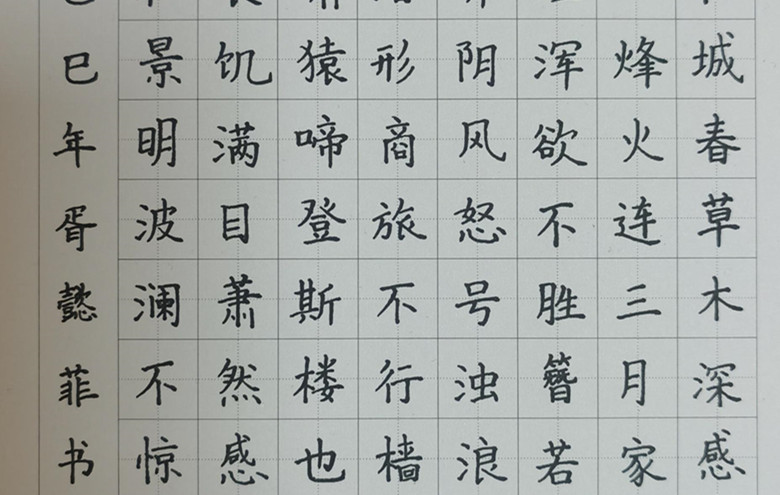 城春草木深感
烽火连三月家
浑欲不胜簪若
阴风怒号浊浪
形商旅不行樯
猿啼登斯楼也
饥满目萧然感
景明波澜不惊
巳年胥懿菲书